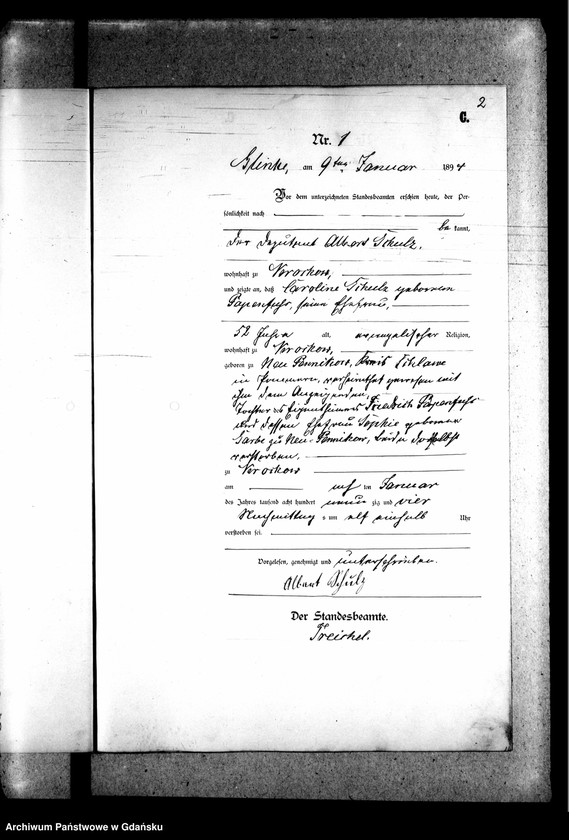 2
C.
Nr. 1
am 9ten Januar 1894
Vor dem unterzeichneten Standesbeamten erschien heute, der Per-
sönlichkeit nach
be kannt,
der Deputant Albert Schulz,
wohnhaft zu
und zeigte an, daß Caroline Schulz geborene
Papenfuhs, seine Ehefrau,
52 Jahre alt, evangelischer Religion,
wohnhaft zu
geboren zu Neu Pennikow, Kreis Schlawe
in Pommern, verheirathet gewesen mit
ihm dem Anzeigenden,
Tochter des Eigenthümers Friedrich Papenfuhs
und dessen Ehefrau Sophie geborene
zu Neu-Pennikow, beide daselbst
verstorben,
zu
am ten Januar
des Jahres tausend acht hundert neun zig und vier
Nachmittag s um elf einhalb Uhr
verstorben sei.
Vorgelesen, genehmigt und unterschrieben.
Albert Schulz
Der Standesbeamte.
Archiwum Państwowe w Gdańsku